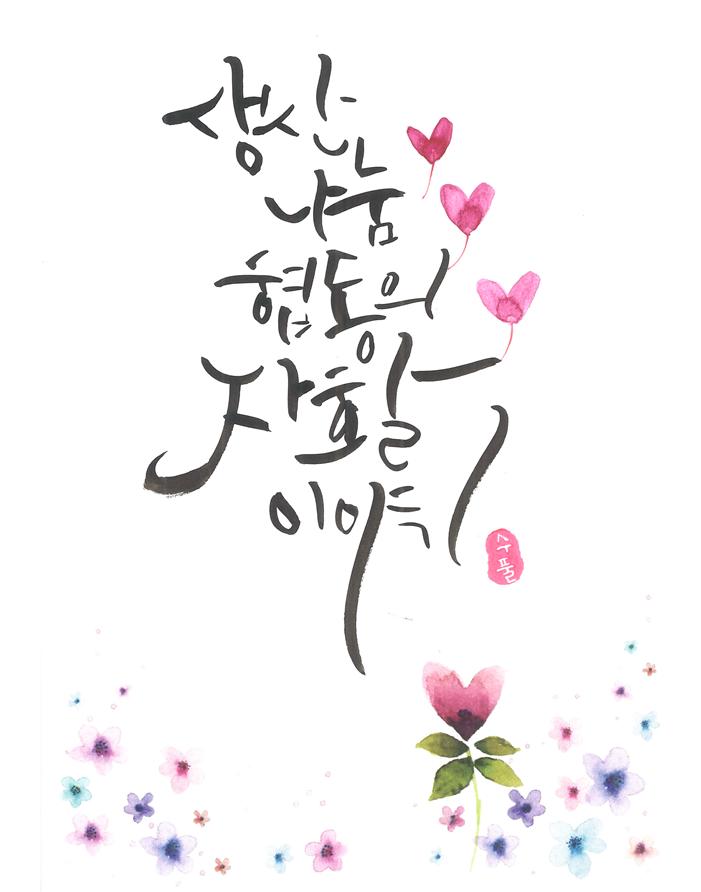 생산
나눔
협동의
자활
이야기
수풀